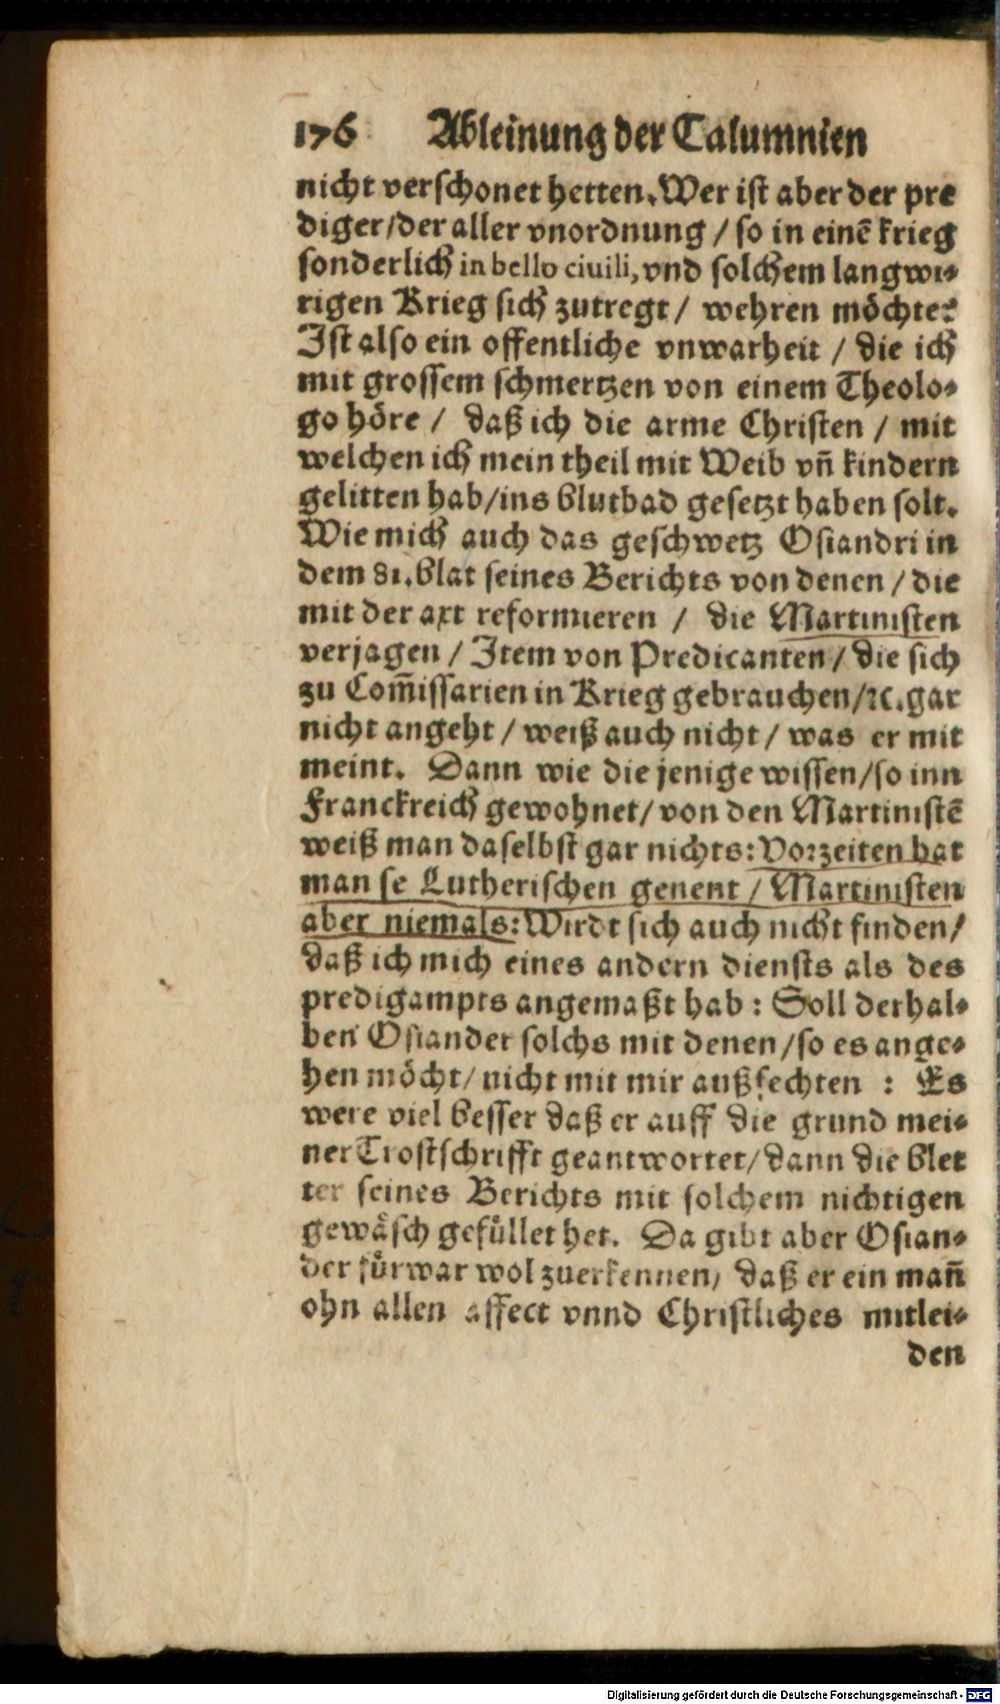 176 Ableinung der Calumnien
nicht verschonet hetten. Wer ist aber der pre
diger/der aller vnordnung / so in einẽ krieg
sonderlich in bello ciuili, vnd solchem langwi-
rigen Krieg sich zutregt / wehren möchte?
Ist also ein offentliche vnwarheit / die ich
mit grossem schmertzen von einem Theolo-
go höre / daß ich die arme Christen / mit
welchen ich mein theil mit Weib vñ kindern
gelitten hab/ins blutbad gesetzt haben solt.
Wie mich auch das geschwetz Osiandri in
dem 81. blat seines Berichts von denen / die
mit der axt reformieren / die Martinisten
verjagen / Item von Predicanten / die sich
zu Com̃issarien in Krieg gebrauchen/ꝛc. gar
nicht angeht / weiß auch nicht / was er mit
meint. Dann wie die jenige wissen/so inn
Franckreich gewohnet/ von den Martinistẽ
weiß man daselbst gar nichts: Vorzeiten hat
man se Lutherischen genent / Martinisten
aber niemals: Wirdt sich auch nicht finden/
daß ich mich eines andern diensts als des
predigampts angemaßt hab : Soll derhal-
ben Osiander solchs mit denen /so es ange-
hen möcht/ nicht mit mir außfechten : Es
were viel besser daß er auff die grund mei-
ner Trostschrifft geantwortet/ dann die blet
ter seines Berichts mit solchem nichtigen
gewäsch gefüllet het. Da gibt aber Osian-
der fürwar wol zuerkennen, daß er ein mañ
ohn allen affect vnnd Christliches mitlei-
den
Digitalisierung gefördert durch die Deutsche Forschungsgemeinschaft - DFG